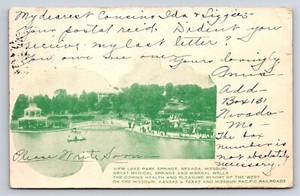 My dearest Cousins Ida &
Your postal recd. Didn't you
receive my last letter?
one. Yours lovingly
Add—
Box 131
Nevada
Mo. The
box
number is
not absolutely
necessary.
Please Write Soon
VIEW LAKE PARK SPRINGS, NEVADA, MISSOURI.
GREAT MEDICAL SPRINGS AND MINERAL WELLS
THE COMING HEALTH AND PLEASURE RESORT OF THE WEST
ON THE MISSOURI, KANSAS & TEXAS AND MISSOURI PACIFIC RAILROADS